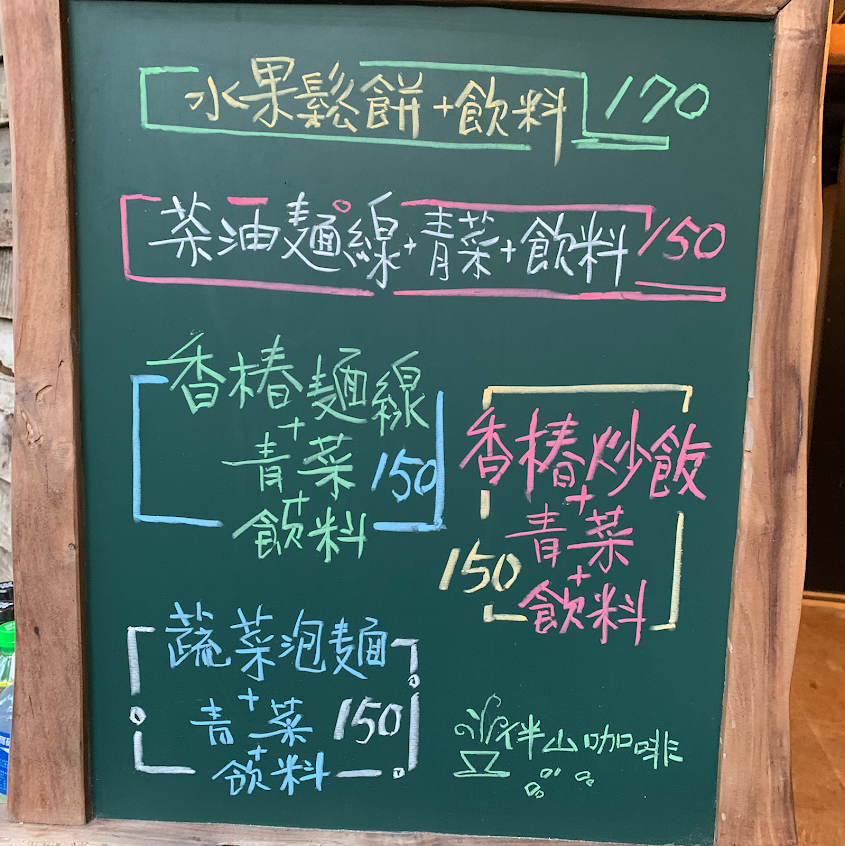 水果鬆餅+飲料 170
茶油麵線+青菜+飲料 150
香椿麵線
+
青菜 150
+
飲料
香椿炒飯
+
青菜
+
150 飲料
蔬菜泡麵
+
青菜 150
+
飲料
伴山咖啡